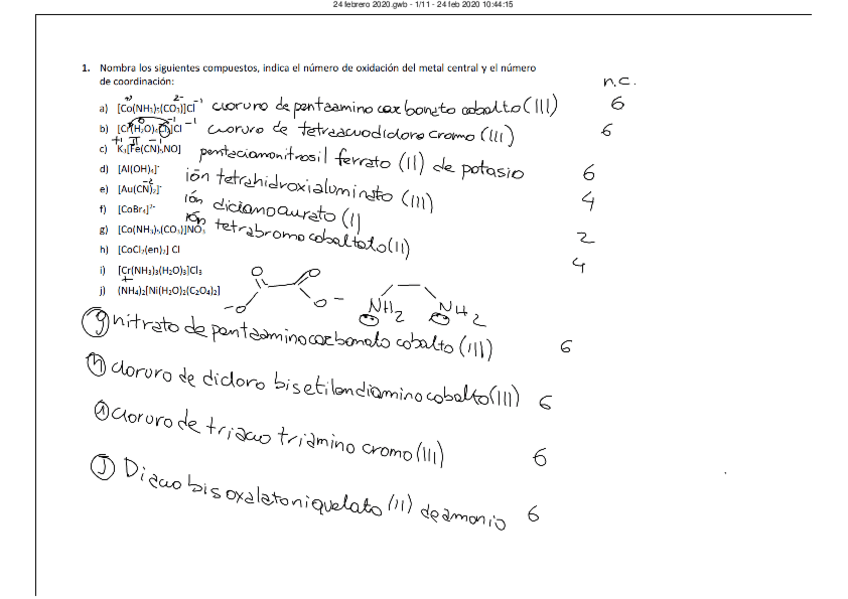 24 febrero 2020.gwb - 1/11 - 24 feb 2020 10:44:15
1. Nombra los siguientes compuestos, indica el número de oxidación del metal central y el número
de coordinación:
n.c.
a) [Co(NH₃)₅(CO₃)]Cl cloruro de pentaamino carbonato cobalto (III) 6
b) cloruro de tetraacuodicloro cromo (III) 6
c) K₃[Fe(CN)₅NO] pentacianonitrosil ferrato (II) de potasio 6
d) [Al(OH)₄]⁻ ión tetrahidroxialuminato (III) 4
e) [Au(CN)₂]⁻ ión dicianoaurato (I) 2
f) [CoBr₄]²⁻ ión tetrabromocobaltato (II) 4
g) [Co(NH₃)₅(CO₃)]NO₃
h) [CoCl₂(en)₂] Cl
i) [Cr(NH₃)₃(H₂O)₃]Cl₃
j) (NH₄)₂[Ni(H₂O)₂(C₂O₄)₂]
O O
-O O - NH₂ NH₂
g nitrato de pentaaminocarbonato cobalto (III) 6
h cloruro de dicloro bisetilendiamino cobalto (III) 6
i cloruro de triacuo triamino cromo (III) 6
J Diacuo bis oxalatoniquelato (II) de amonio 6